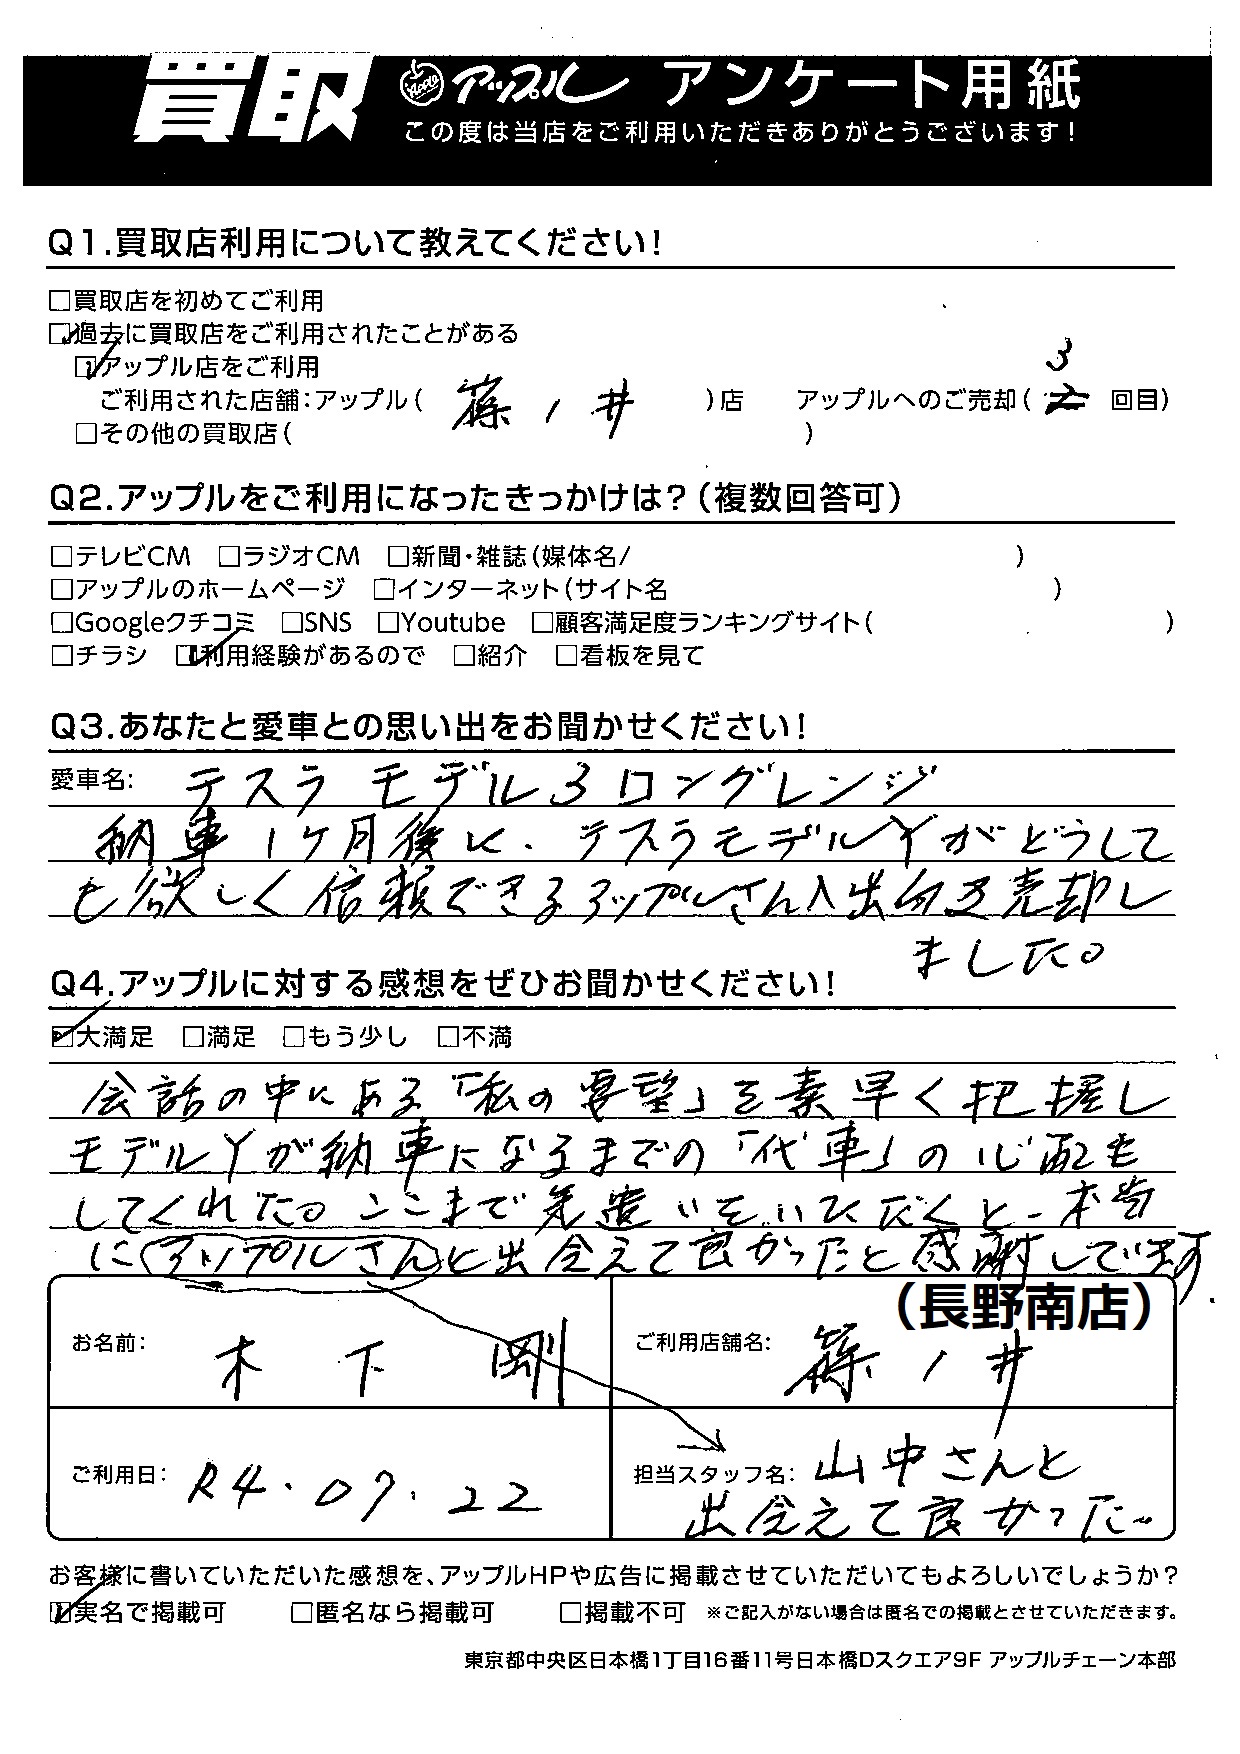 買取 Apple アップル アンケート用紙
この度は当店をご利用いただきありがとうございます!
Q1.買取店利用について教えてください!
□買取店を初めてご利用
☑過去に買取店をご利用されたことがある
☑アップル店をご利用
ご利用された店舗:アップル( 篠ノ井 )店 アップルへのご売却( 3 回目)
□その他の買取店( )
Q2.アップルをご利用になったきっかけは?(複数回答可)
□テレビCM □ラジオCM □新聞・雑誌(媒体名/ )
□アップルのホームページ □インターネット(サイト名 )
□Googleクチコミ □SNS □Youtube □顧客満足度ランキングサイト( )
□チラシ ☑利用経験があるので □紹介 □看板を見て
Q3.あなたと愛車との思い出をお聞かせください!
愛車名: テスラ モデル3 ロングレンジ
納車1ケ月後に、テスラモデルYがどうして
も欲しく信頼できるアップルさんへ出向き売却し
ました。
Q4.アップルに対する感想をぜひお聞かせください!
☑大満足 □満足 □もう少し □不満
会話の中にある「私の要望」を素早く把握し
モデルYが納車になるまでの「代車」の心配も
してくれた。ここまで気遣いをいただくと、本当
にアップルさんと出会えて良かったと感謝しています.
(長野南店)
お名前: 木下 剛 ご利用店舗名: 篠ノ井
ご利用日: R4.07.22 担当スタッフ名: 山中さんと
出会えて良かった〜
お客様に書いていただいた感想を、アップルHPや広告に掲載させていただいてもよろしいでしょうか?
☑実名で掲載可 □匿名なら掲載可 □掲載不可 ※ご記入がない場合は匿名での掲載とさせていただきます。
東京都中央区日本橋1丁目16番11号日本橋Dスクエア9F アップルチェーン本部